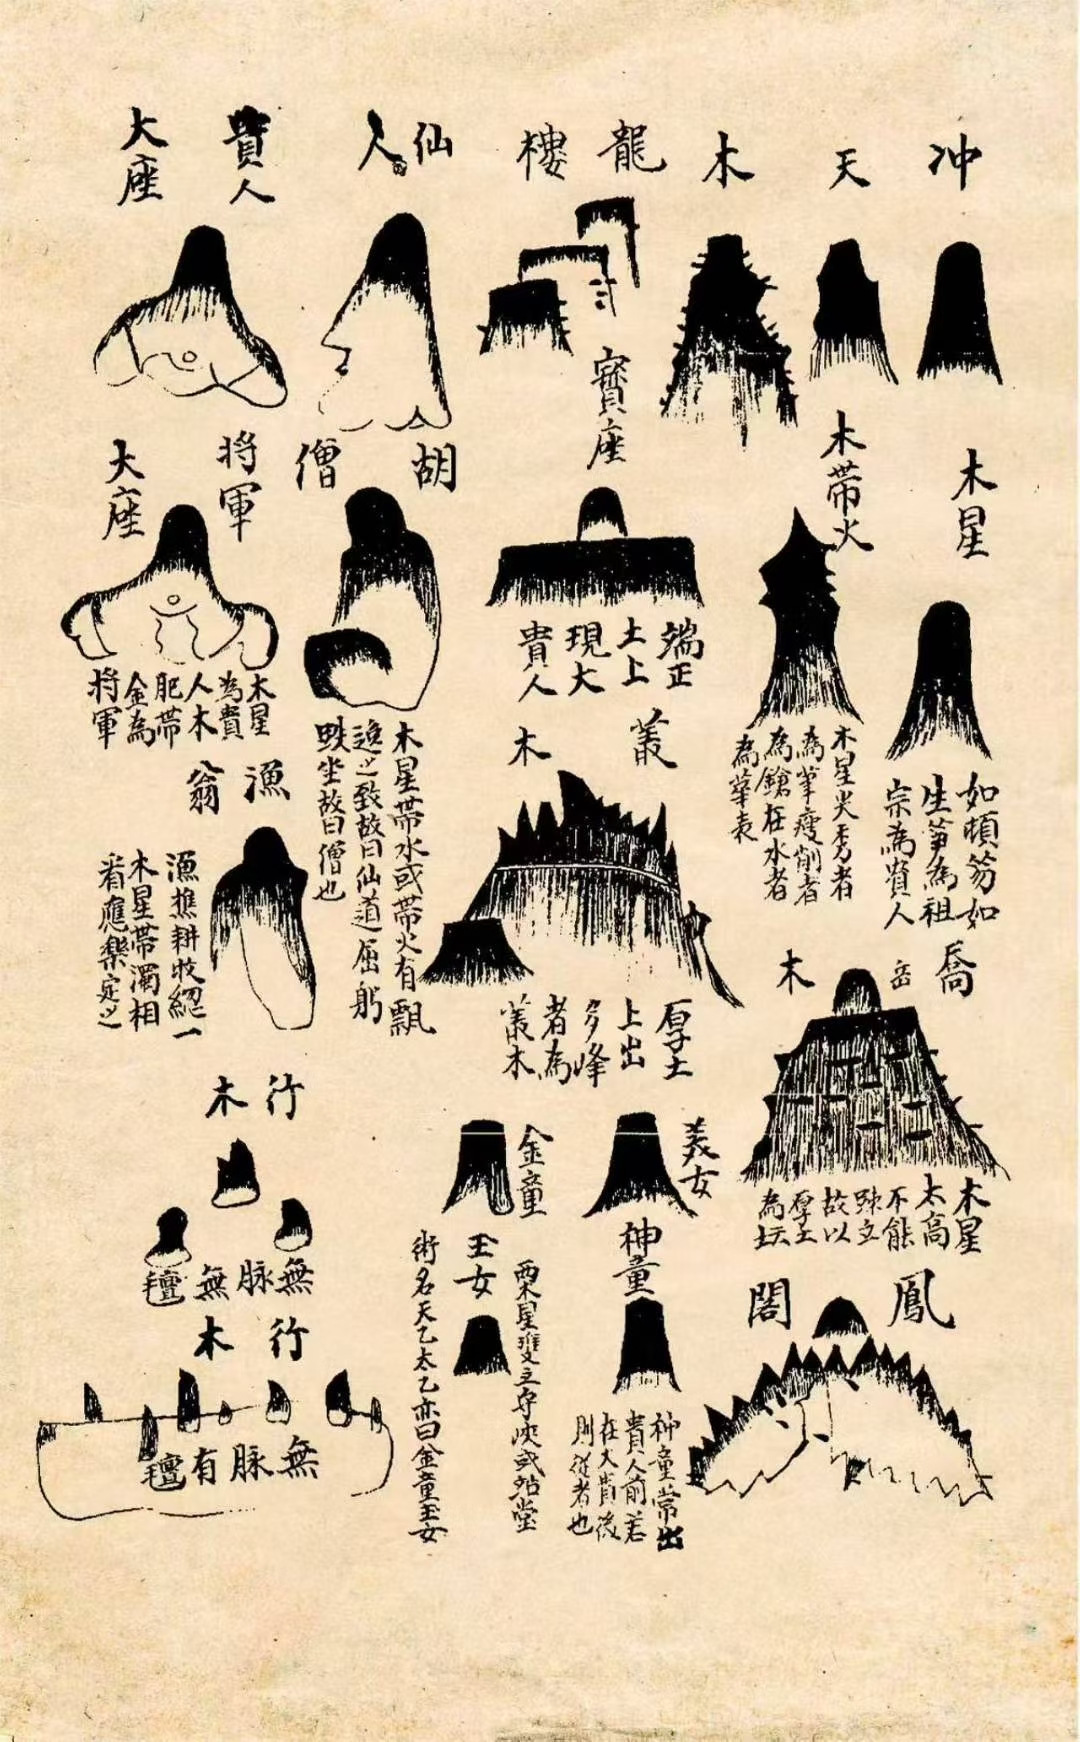 冲天木
龍樓
仙人
貴人
大座
木星
如頓笏如
生笋為祖
宗為貴人
木帶火
木星尖秀者
為筆瘦削者
為鎗在水者
為華表
寶座
端正
土上
現大
貴人
胡僧
木星帶水或帶火有飄
逸之致故曰仙道屈躬
趺坐故曰僧也
將軍
大座
木星
為貴
人木
肥帶
金為
將軍
叢木
厚土
上出
多峰
者為
叢木
漁翁
漁樵耕牧總一
木星帶濁相
看應樂定之
喬岳木
木星
太高
不能
踈立
故以
厚土
為坛
義女
神童
神童常出
貴人前若
在大貴後
則從者也
金童
玉女
星雙立守峽或
術名天乙太乙亦曰金童玉女
鳳閣
行木
無脉無氊
行木
無脉有氊